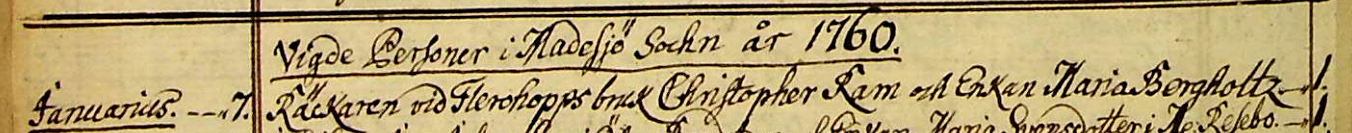 Vigde Personer i Madesjö Sochn år 1760.
Januarius. - - - 7. Räckaren vid Flerohopps bruk Christopher Kam och Enkan Maria Bergholtz - 1.
Enkan Maria Svensdotter i Resebo. - 1.